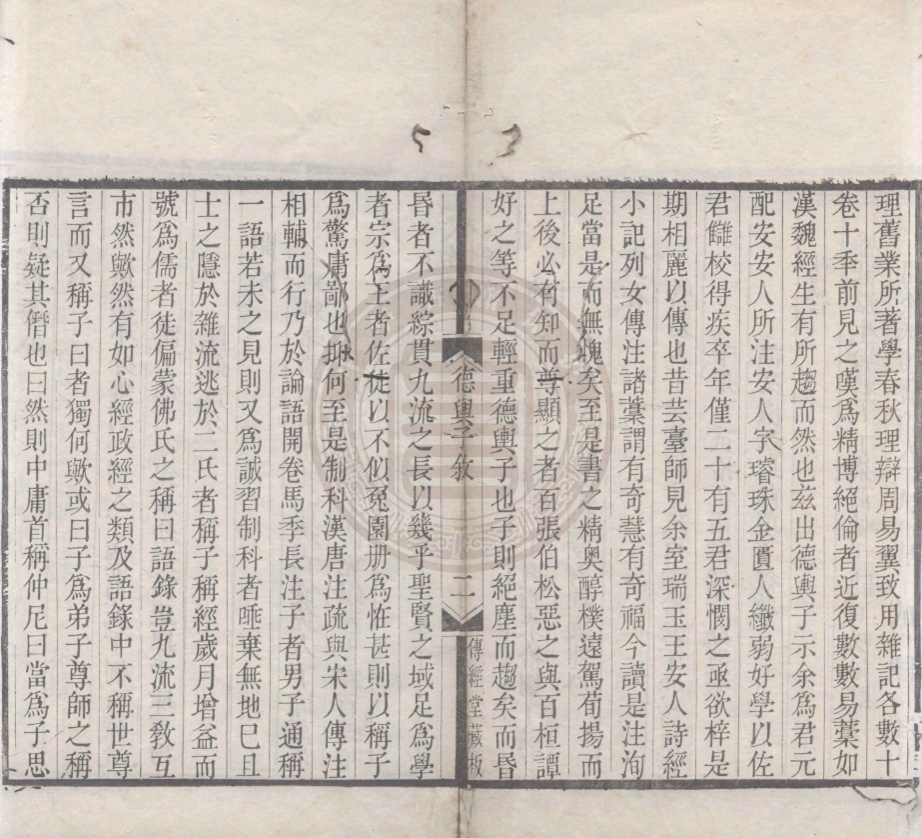 理舊業所著學春秋理辯周易翼致用雜記各數十
卷十季前見之嘆爲精博絕倫者近復數數易藁如
漢魏經生有所趨而然也兹出德輿子示余爲君元
配安安人所注安人字璿珠金匱人纖弱好學以佐
君讎校得疾卒年僅二十有五君深憫之亟欲梓是
期相麗以傳也昔芸臺師見余室瑞玉王安人詩經
小記列女傳注諸藁謂有奇慧有奇福今讀是注洵
足當是而無媿矣至是書之精奧醇樸遠駕荀揚而
上後必有知而尊顯之者百張伯松惡之與百桓譚
好之等不足輕重德輿子也子則絕塵而趨矣而昬
德輿子敘
二
傳經堂藏板
昬者不識綜貫九流之長以幾乎聖賢之域足爲學
者宗爲王者佐徒以不似兔園册爲恠甚則以稱子
爲驚庸鄙也抑何至是制科漢唐注疏與宋人傳注
相輔而行乃於論語開卷馬季長注子者男子通稱
一語若未之見則又爲誠習制科者唾棄無地巳且
士之隱於雜流逃於二氏者稱子稱經歲月增益而
號爲儒者徒偏蒙佛氏之稱曰語錄豈九流三教互
市然歟然有如心經政經之類及語錄中不稱世尊
言而又稱子曰者獨何歟或曰子爲弟子尊師之稱
否則疑其僭也曰然則中庸首稱仲尼曰當爲子思